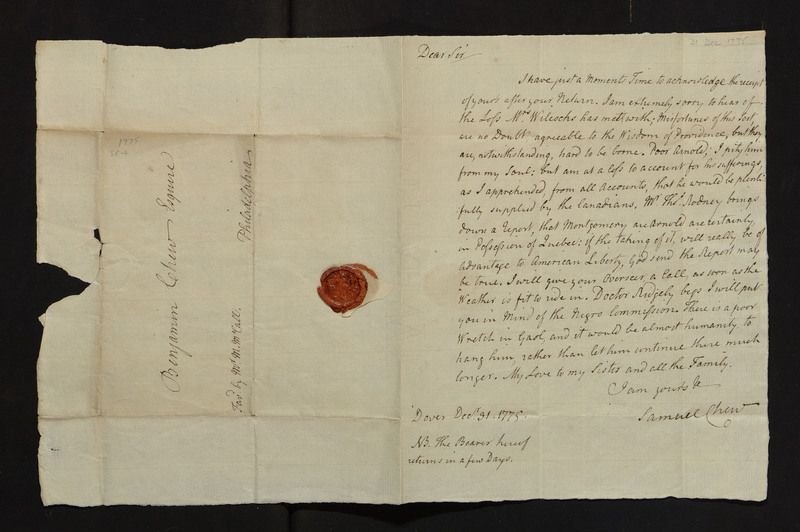 21 Dec 1775
Dear Sir
I have just a Moments Time to acknowledge the receipt
of yours after your Return. I am extremely sorry to hear of
the Loss Mrs Wilcocks has met with; Misfortunes of this Sort,
are no Doubt agreeable to the Wisdom of Providence, but they
are, notwithstanding, hard to be borne. Poor Arnold; I pity him
from my Soul: but am at a loss to account for his sufferings,
as I apprehended, from all Accounts, that he would be plenti
fully supplied by the Canadians. Mr Thos. Rodney brings
down a Report, that Montgomery and Arnold are certainly
in Possession of Quebec: if the taking of it, will really be of
advantage to American Liberty, God send the Report may
be true. I will give your Overseer a Call, as soon as the
Weather is fit to ride in. Doctor Ridgely begs I will put
you in Mind of the Negro Commission. There is a poor
Wretch in Gaol, and it would be almost humanity to
hang him, rather than let him continue there much
longer. My Love to my Sister and all the Family.
I am yours &c
Samuel Chew
Dover Decr. 31. 1775.
NB. The Bearer hereof
returns in a few Days.
1775
Benjamin Chew Esquire
Philadelphia
Fav'd by Mr. M. McCall.